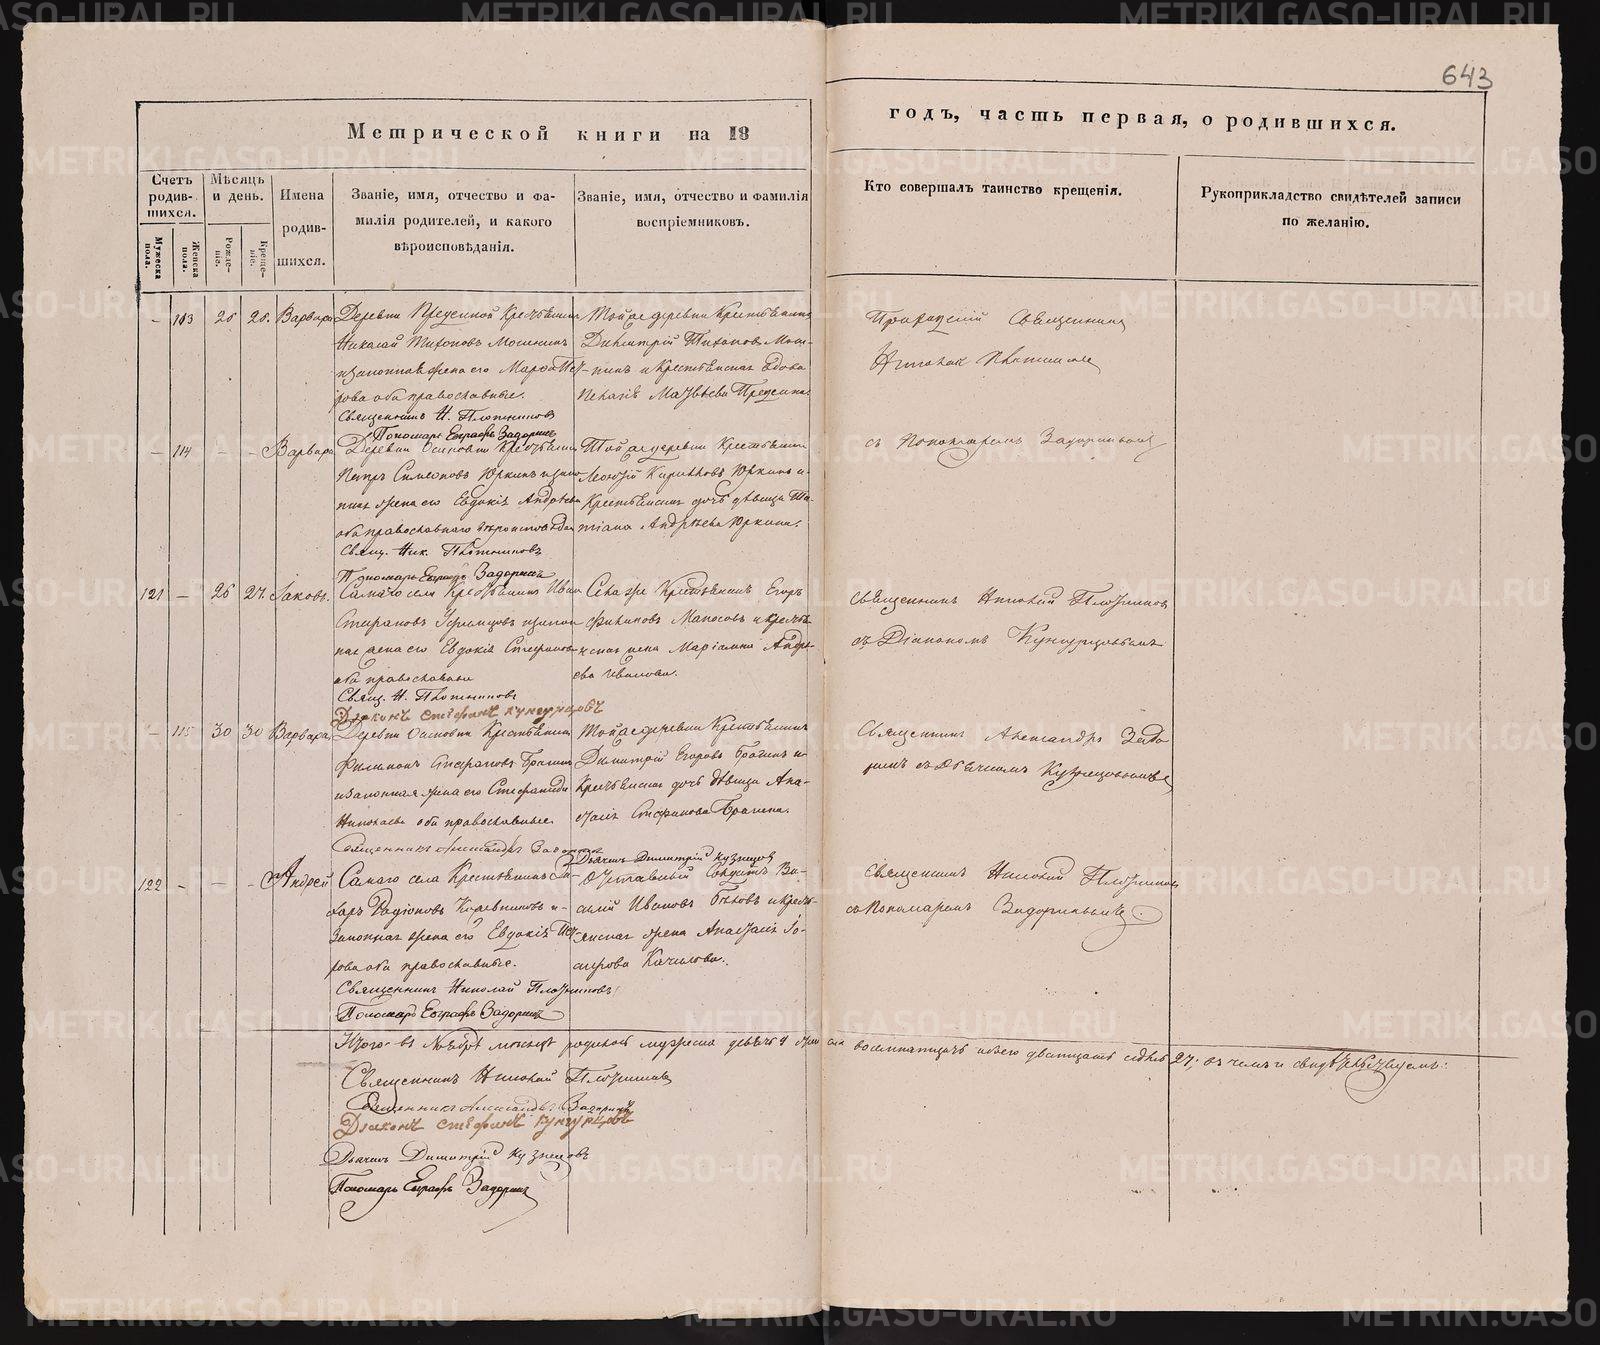 643
Метрической книги на 18
годъ, часть первая, о родившихся.
Счетъ родив-шихся.
Мужеска пола.
Женска пола.
Мѣсяцъ и день.
Рожде-ніе.
Креще-ніе.
Имена
родив-
шихся.
Званіе, имя, отчество и фа-
милія родителей, и какого
вѣроисповѣданія.
Званіе, имя, отчество и фамилія
воспріемниковъ.
Кто совершалъ таинство крещенія.
Рукоприкладство свидѣтелей записи
по желанію.
113 26 26. Варвара
Деревни Крестьянинъ
Николай Тихоновъ
жена его Марѳа Пет-
рова оба православные.
Священникъ Н. Плотниковъ
Пономарь Евграфъ Задоринъ
Тойже деревни Крестьянинъ
Димитрій Тихоновъ
и Крестьянская вдова
Приходскій Священникъ
Николай Плотниковъ
съ Пономаремъ Задоринымъ
114 Варвара
Деревни Осиновки Крестьянинъ
Петръ Симеоновъ Юркинъ и закон-
ная жена его Евдокія Андреева
оба православнаго вѣроисповѣда
Свящ. Ник. Плотниковъ
Пономарь Евграфъ Задоринъ
Тойже деревни Крестьянинъ
Юркинъ и
Крестьянская дочь дѣвица Та-
тіана Андреева Юркина.
121 26 27. Іаковъ.
Самаго села Крестьянинъ Иванъ
Стефановъ и закон
ная жена его Евдокія Стефанова
оба православные
Свящ. Н. Плотниковъ
Діаконъ Стефанъ Кунгурцовъ
Села же Крестьянинъ Егоръ
и кресть
янская жена Маріамна Андре-
ева Иванова.
Священникъ Николай Плотниковъ
съ Діакономъ Кунгурцовымъ
115 30 30 Варвара
Деревни Осиновки Крестьянинъ
Филимонъ Стефановъ Брагинъ
и законная жена его Стефанида
Николаева оба православные.
Священникъ Александръ Задоринъ
Тойже деревни Крестьянинъ
Димитрій Егоровъ Брагинъ и
Крестьянская дочь дѣвица Ана-
стасія Стефанова Брагина.
Дьячекъ Димитрій Кузнецовъ
Священникъ Александръ Задо
ринъ съ Дьячкомъ Кузнецовымъ
122 Андрей
Самаго села Крестьянинъ За-
харъ Родіоновъ и
законная жена его Евдокія Пет-
рова оба православные.
Священникъ Николай Плотниковъ
Пономарь Евграфъ Задоринъ
Отставный Солдатъ Ва-
силій Ивановъ Бѣловъ и кресть-
янская жена Анастасія
Качалова.
Священникъ Николай Плотниковъ
съ Пономаремъ Задоринымъ.
Итого въ Ноябрѣ мѣсяцѣ родилось мужеска девять 9 женска восемнатцать и всего дватцать седмь 27; въ чемъ и свидѣтельствуемъ:
Священникъ Николай Плотниковъ
Священникъ Александръ Задоринъ
Діаконъ Стефанъ Кунгурцовъ
Дьячекъ Димитрій Кузнецовъ
Пономарь Евграфъ Задоринъ
METRIKI.GASO-URAL.RU